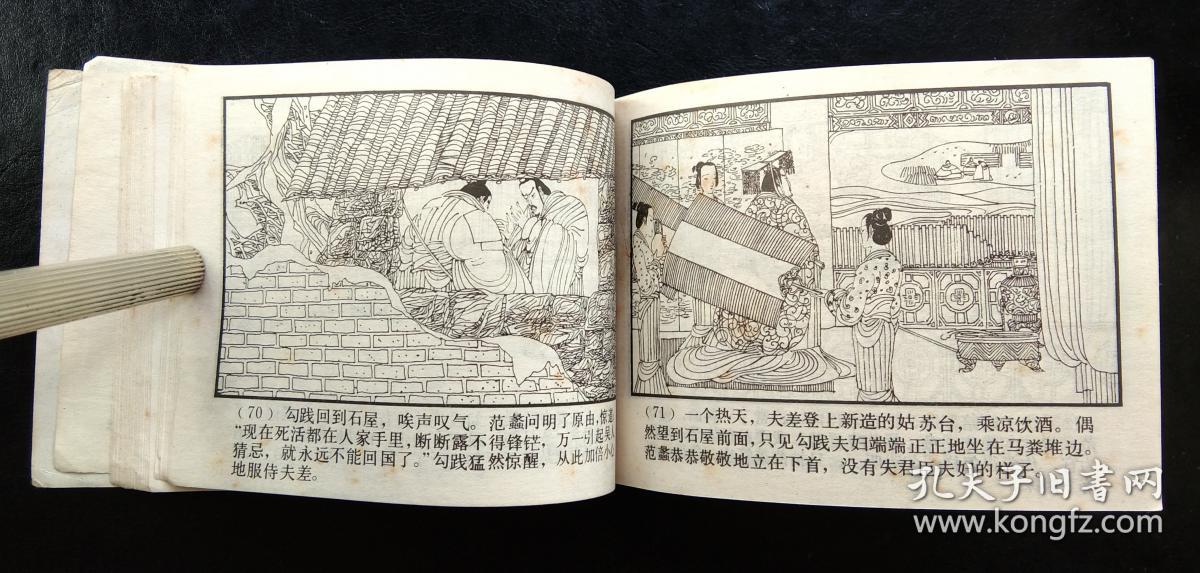 (70) 勾践回到石屋，唉声叹气。范蠡问明了原由，惊道：
“现在死活都在人家手里，断断露不得锋铓，万一引起吴人
猜忌，就永远不能回国了。”勾践猛然惊醒，从此加倍小心
地服侍夫差。
(71) 一个热天，夫差登上新造的姑苏台，乘凉饮酒。偶
然望到石屋前面，只见勾践夫妇端端正正地坐在马粪堆边。
范蠡恭恭敬敬地立在下首，没有失君臣夫妇的样子。
孔夫子旧书网
www.kongfz.com